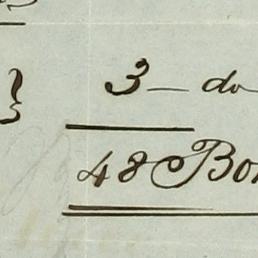 } 3 — do
48 Bo